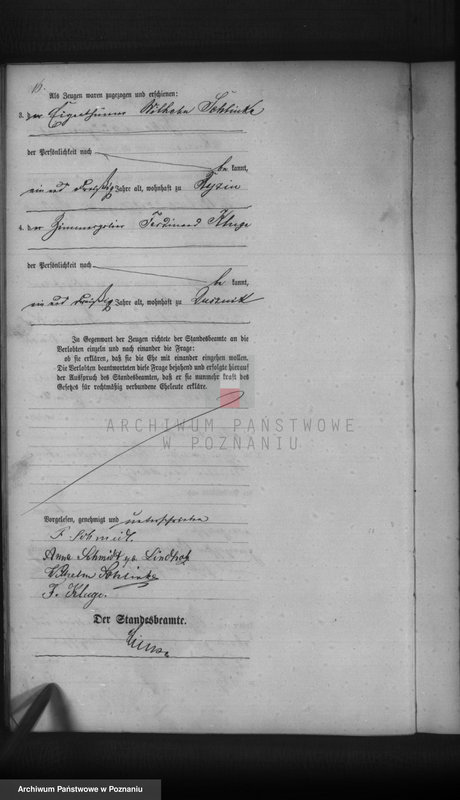 Als Zeugen waren zugezogen und erschienen:
3. der Eigenthümer Wilhelm Schlinke
der Persönlichkeit nach
be kannt,
ein und dreißig Jahre alt, wohnhaft zu
4. der Zimmergeselle Ferdinand Kluge
der Persönlichkeit nach
be kannt,
ein und dreißig Jahre alt, wohnhaft zu
In Gegenwart der Zeugen richtete der Standesbeamte an die
Verlobten einzeln und nach einander die Frage:
ob sie erklären, daß sie die Ehe mit einander eingehen wollen.
Die Verlobten beantworteten diese Frage bejahend und erfolgte hierauf
der Ausspruch des Standesbeamten, daß er sie nunmehr kraft des
Gesetzes für rechtmäßig verbundene Eheleute erkläre.
ARCHIWUM PAŃSTWOWE
W POZNANIU
Vorgelesen, genehmigt und unterschrieben
F. Schmidt.
Anna Schmidt
Wilhelm Schlinke
F. Kluge.
Der Standesbeamte.
Archiwum Państwowe w Poznaniu